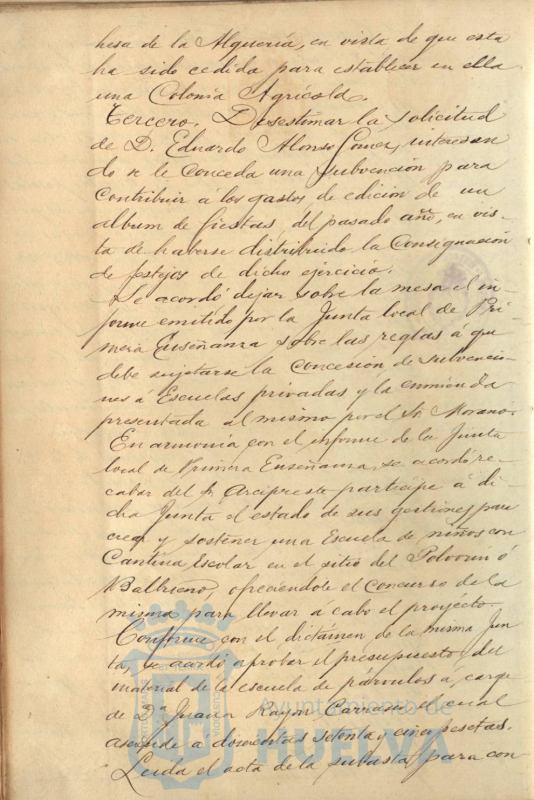 hesa de la Alquería, en vista de que esta
ha sido cedida para establecer en ella
una Colonia Agrícola.
Tercero. Desestimar la solicitud
de D. Eduardo Alonso Gomez, interesan
do se le conceda una subvención para
contribuir á los gastos de edición de un
album de fiestas, del pasado año, en vis-
ta de haberse distribuido la Consignación
de festejos de dicho ejercicio.
Se acordó dejar sobre la mesa el in-
forme emitido por la Junta local de Pri
mera Enseñanza sobre las reglas á que
debe sujetarse la concesión de subvencio-
nes á Escuelas privadas y la enmienda
presentada al mismo por el Sr Morano.
En armonía con el informe de la Junta
local de Primera Enseñanza, se acordó re-
cabar del Sr Arcipreste participe á di
cha Junta el estado de sus gestiones para
crear y sostener una Escuela de niños con
Cantina Escolar en el sitio del Polvorin ó
Balbueno, ofreciendole el concurso de la
misma para llevar a cabo el proyecto.
Conforme con el dictámen de la misma Jun
ta, se acordó aprobar el presupuesto del
material de la escuela de párvulos á cargo
de Dª Juana Rayon Carrasco el cual
asciende a doscientas setenta y cinco pesetas.
Leida el acta de la subasta para con
Ayuntamiento de
HUELVA